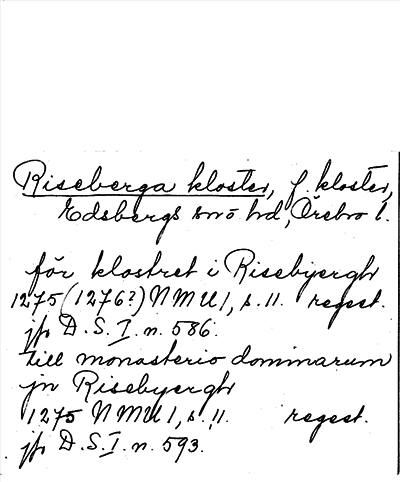 Riseberga kloster, f. kloster,
Edsbergs sn o hd, Örebro l.
för klostret i Risebyergh
1275 (1276?) NMU 1, s. 11. regest.
jfr D.S. I. n. 586.
till monasterio dominarum
jn Risebyergh
1275 NMU 1, s. 11. regest.
jfr D.S. I. n. 593.